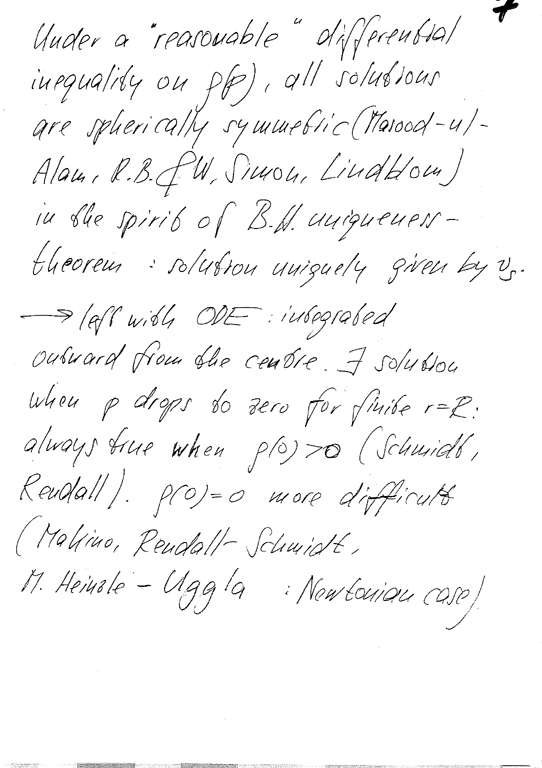 7
Under a "reasonable" differential
inequality on ρ(p), all solutions
are spherically symmetric (Masood-ul-
Alam, R.B. & W. Simon, Lindblom)
in the spirit of B.H. uniqueness-
theorem : solution uniquely given by v_s.
→ left with ODE : integrated
outward from the centre. ∃ solution
when p drops to zero for finite r=R:
always true when ρ(0)>0 (Schmidt,
Rendall). ρ(0)=0 more difficult
(Makino, Rendall-Schmidt,
M. Heinzle - Uggla : Newtonian case)